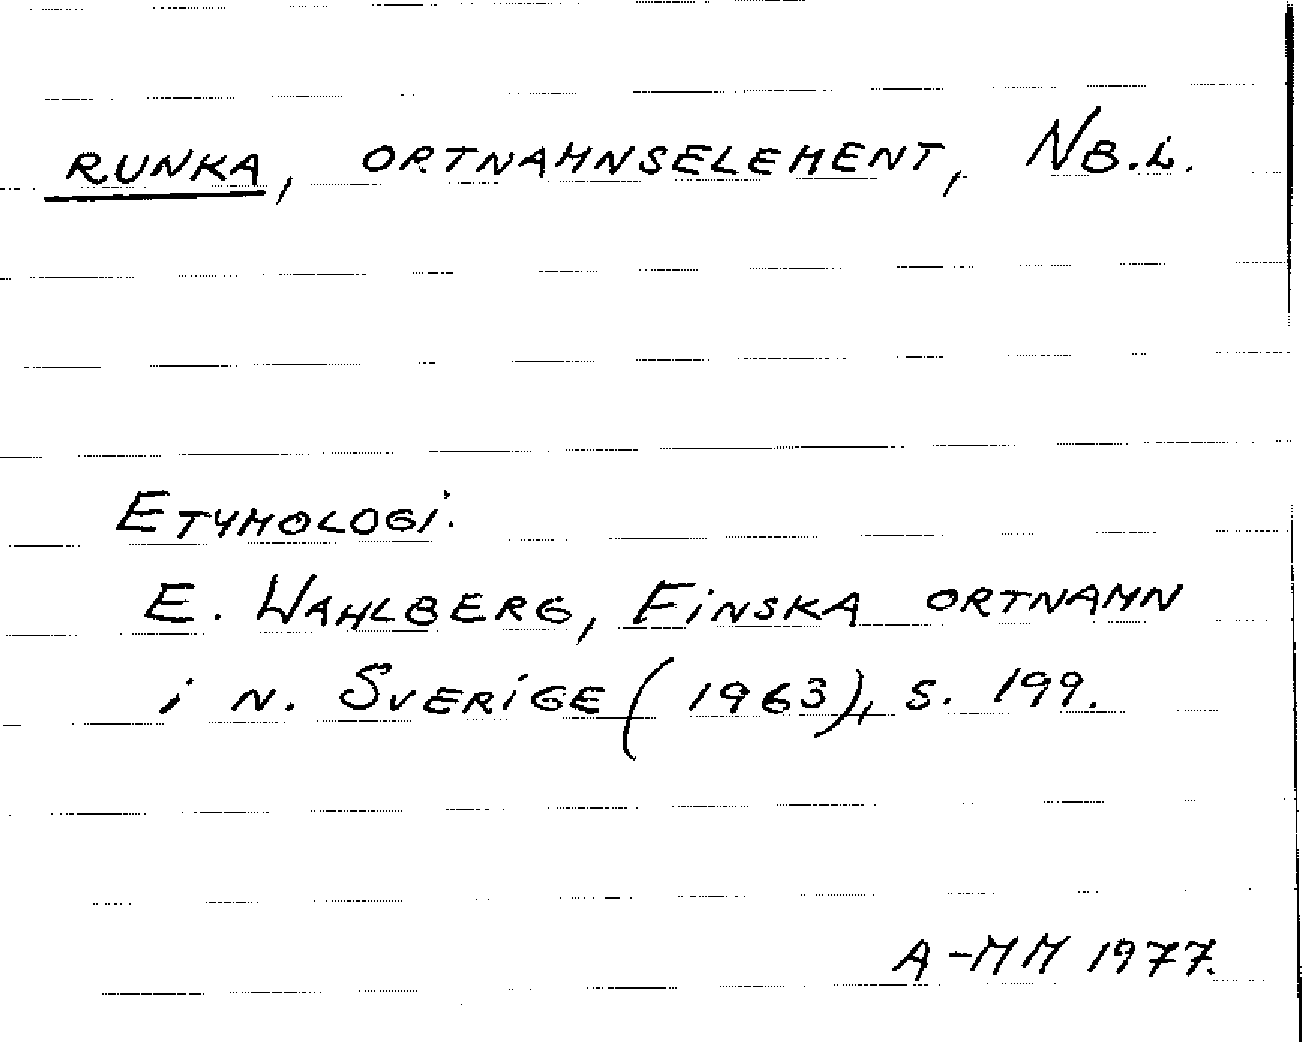 RUNKA, ORTNAMNSELEMENT, NB.L.
ETYMOLOGI.
E. WAHLBERG, FINSKA ORTNAMN
i N. SVERIGE (1963), S. 199.
A-MM 1977.